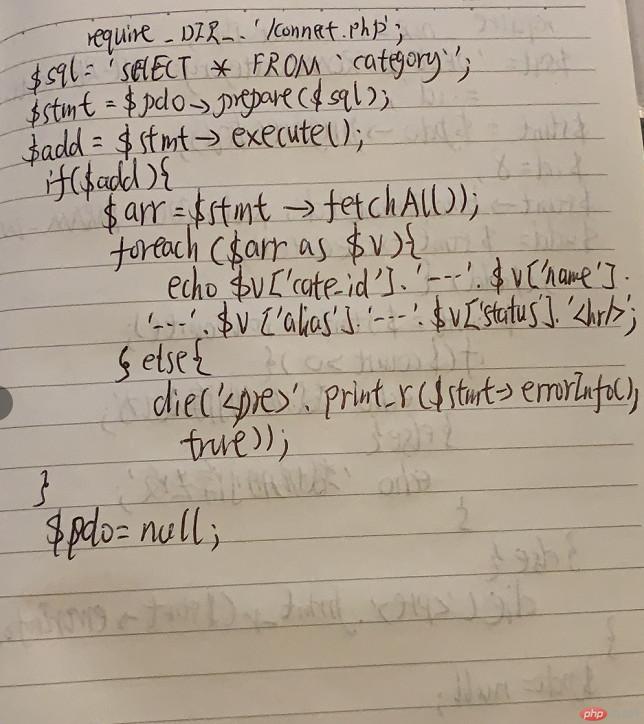 require __DIR__.'/connect.php';
$sql = 'SELECT * FROM `category`';
$stmt = $pdo->prepare($sql);
$add = $stmt->execute();
if($add){
$arr = $stmt->fetchAll());
foreach ($arr as $v){
echo $v['cate_id'].'---'.$v['name'].
'---'.$v['alias'].'---'.$v['status'].'<hr/>';
} else{
die('<pre>'.print_r($stmt->errorInfo(),
true));
}
$pdo = null;
php